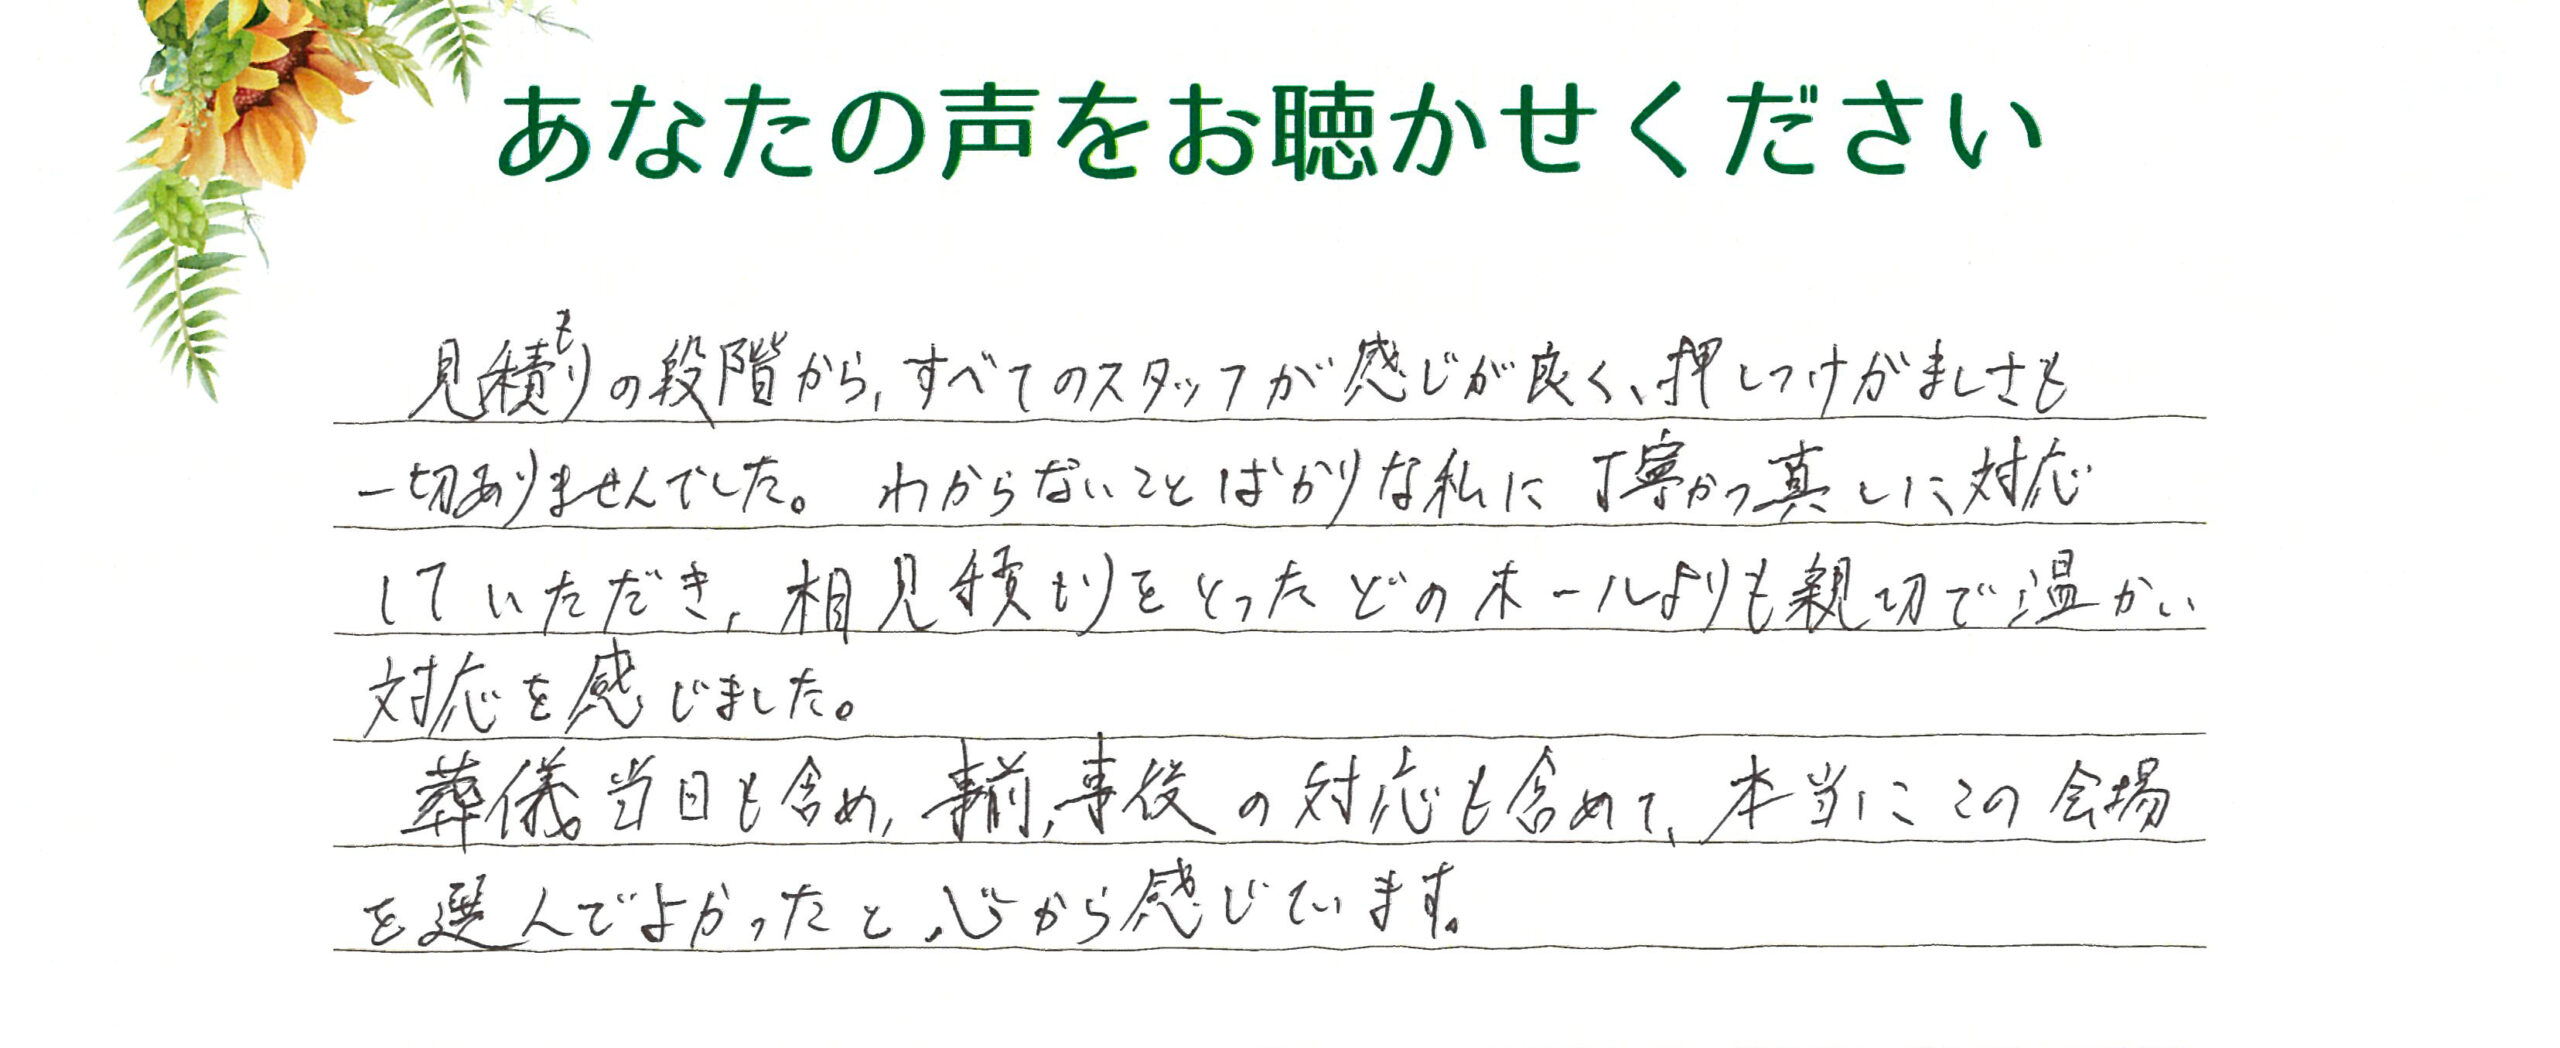 あなたの声をお聴かせください
見積もりの段階から,すべてのスタッフが感じが良く、押しつけがましさも
一切ありませんでした。 わからないことばかりな私に丁寧かつ真しに対応
していただき,相見積もりをとったどのホールよりも親切で温かい
対応を感じました。
葬儀当日も含め,事前,事後の対応も含めて,本当にこの会場
を選んでよかったと心から感じています。